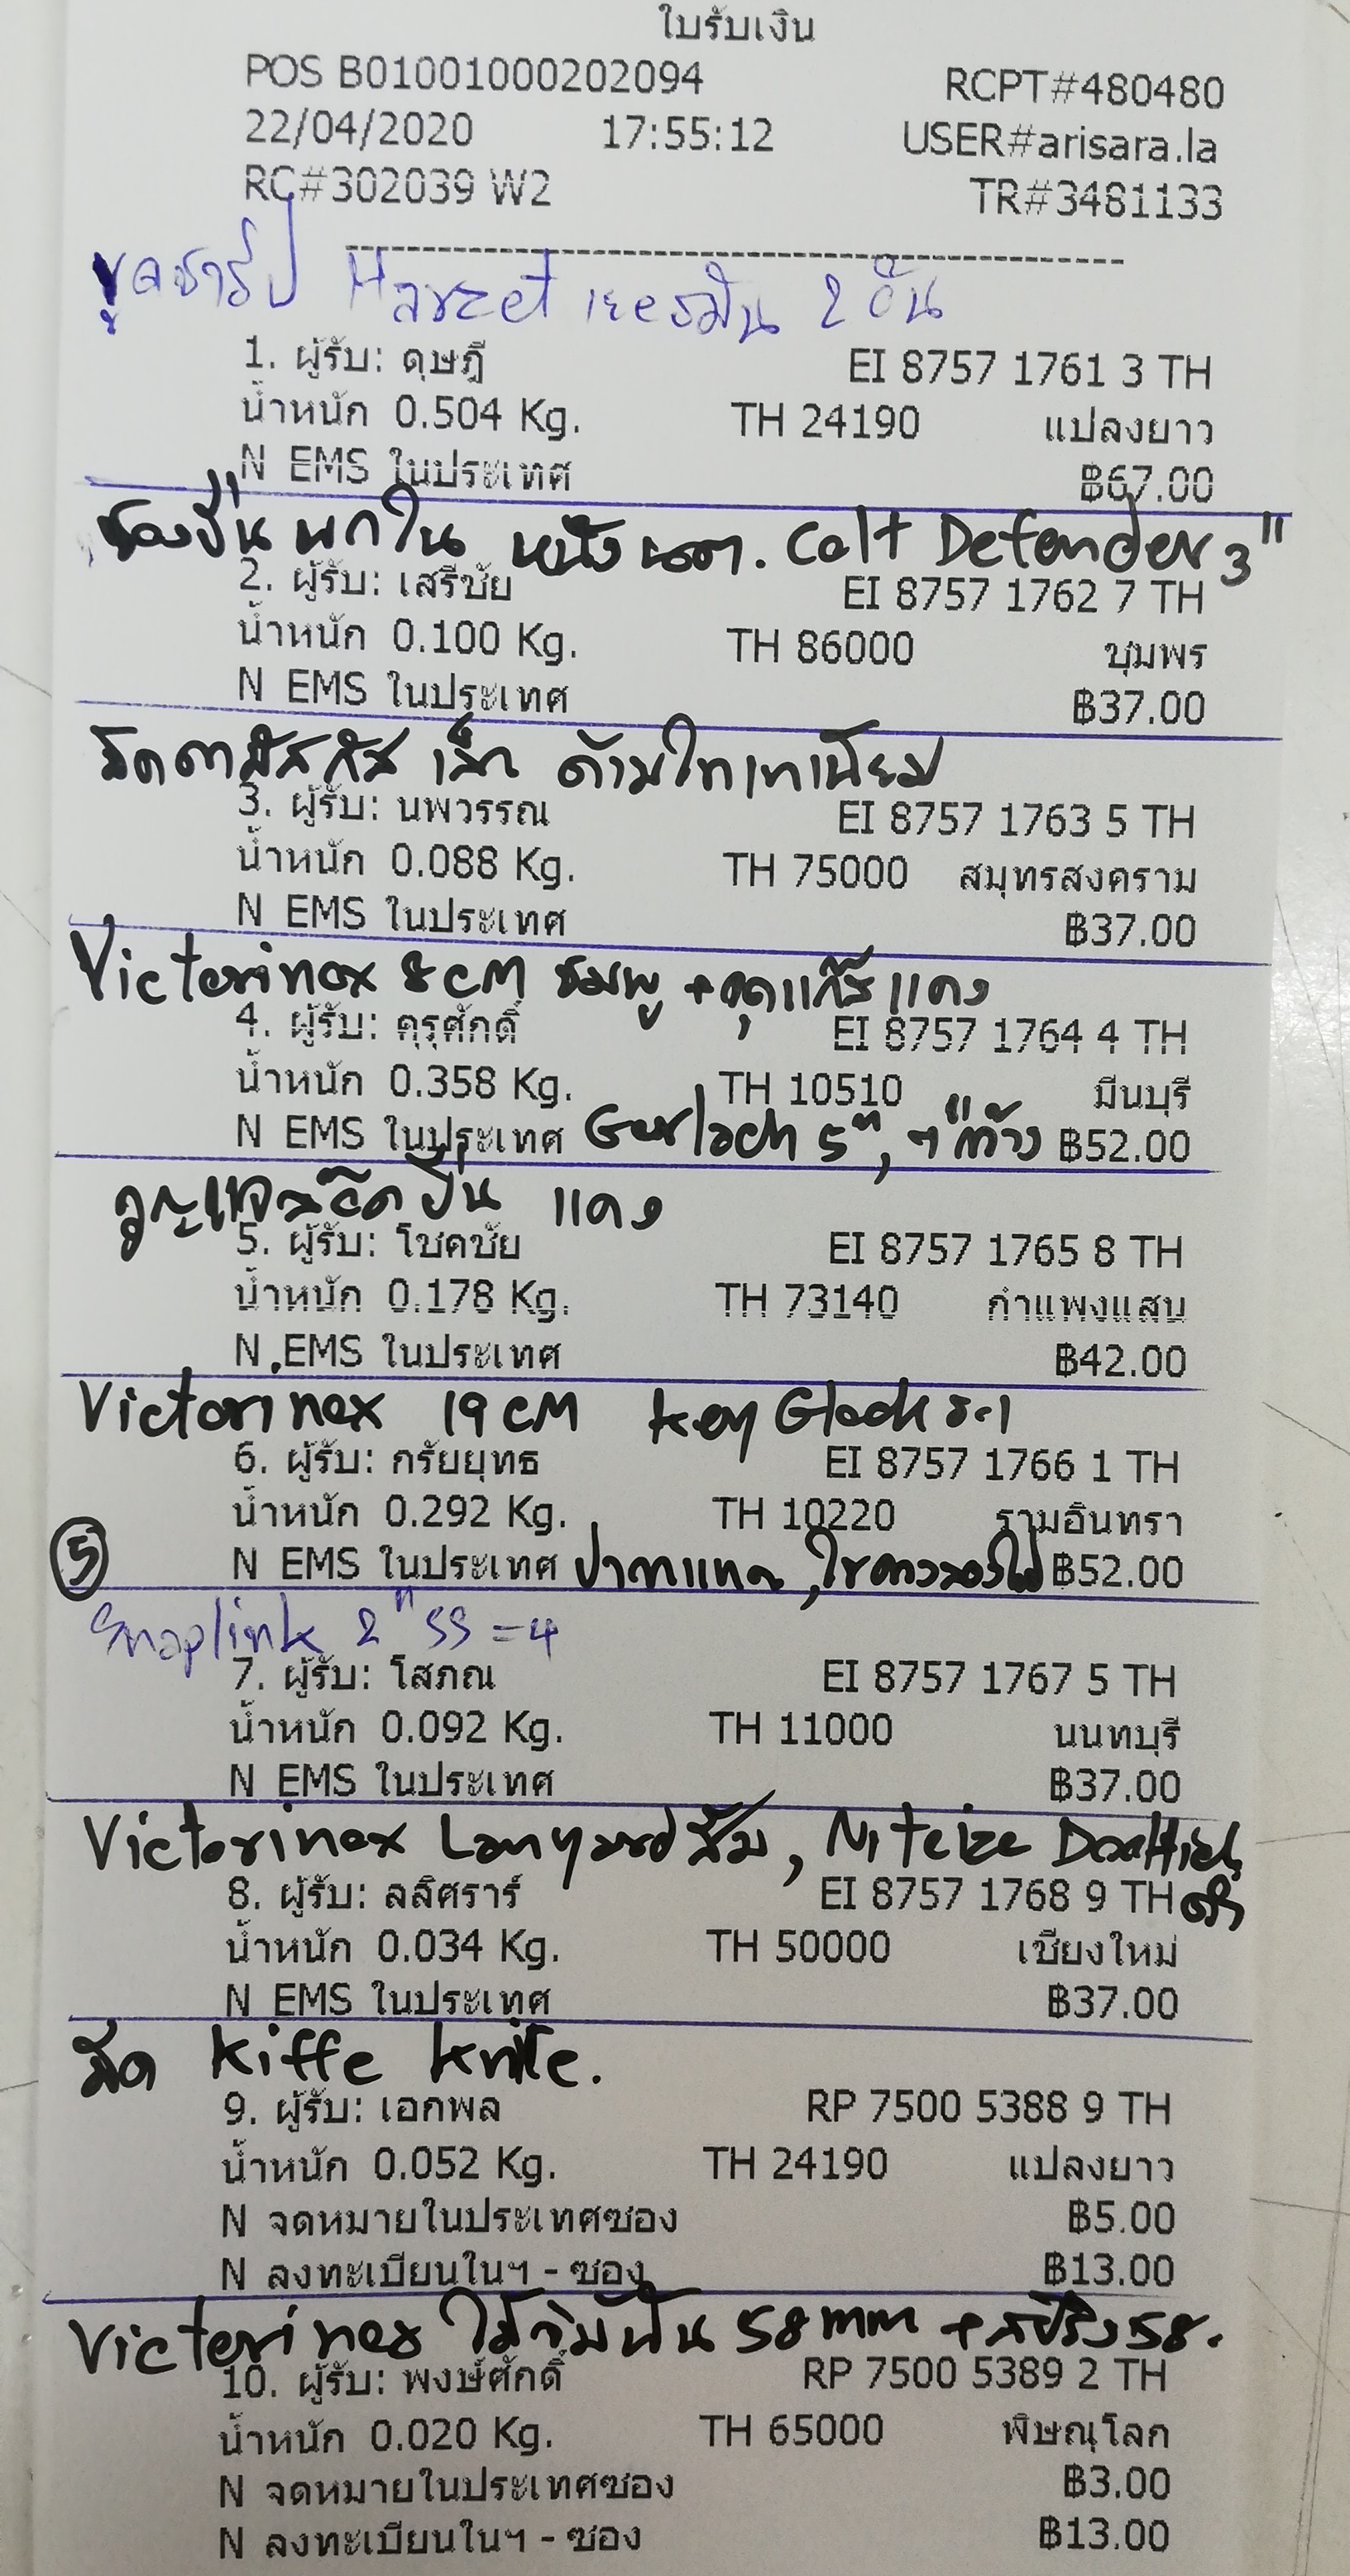 ใบรับเงิน
POS B01001000202094 RCPT#480480
22/04/2020 17:55:12 USER#arisara.la
RC#302039 W2 TR#3481133
2 อัน
1. ผู้รับ: ดุษฎี EI 8757 1761 3 TH
น้ำหนัก 0.504 Kg. TH 24190 แปลงยาว
N EMS ในประเทศ ฿67.00
ซองปืน พกใน หนัง Colt Defender 3"
2. ผู้รับ: เสรีชัย EI 8757 1762 7 TH
น้ำหนัก 0.100 Kg. TH 86000 ชุมพร
N EMS ในประเทศ ฿37.00
มีด เล็ก ด้ามไทเทเนียม
3. ผู้รับ: นพวรรณ EI 8757 1763 5 TH
น้ำหนัก 0.088 Kg. TH 75000 สมุทรสงคราม
N EMS ในประเทศ ฿37.00
Victorinox 8 CM ชมพู + แดง
4. ผู้รับ: คุรุศักดิ์ EI 8757 1764 4 TH
น้ำหนัก 0.358 Kg. TH 10510 มีนบุรี
N EMS ในประเทศ Gerlach 5", ฿52.00
แดง
5. ผู้รับ: โชคชัย EI 8757 1765 8 TH
น้ำหนัก 0.178 Kg. TH 73140 กำแพงแสน
N EMS ในประเทศ ฿42.00
Victorinox 19 CM key Glock
6. ผู้รับ: กรัยยุทธ EI 8757 1766 1 TH
น้ำหนัก 0.292 Kg. TH 10220 รามอินทรา
5 N EMS ในประเทศ ฿52.00
Snaplink 2" SS = 4
7. ผู้รับ: โสภณ EI 8757 1767 5 TH
น้ำหนัก 0.092 Kg. TH 11000 นนทบุรี
N EMS ในประเทศ ฿37.00
Victorinox Lanyard ส้ม, Niteize
8. ผู้รับ: ลลิศราร์ EI 8757 1768 9 TH
น้ำหนัก 0.034 Kg. TH 50000 เชียงใหม่
N EMS ในประเทศ ฿37.00
มีด Kiffe knife.
9. ผู้รับ: เอกพล RP 7500 5388 9 TH
น้ำหนัก 0.052 Kg. TH 24190 แปลงยาว
N จดหมายในประเทศซอง ฿5.00
N ลงทะเบียนในฯ - ซอง ฿13.00
Victorinox ไม้จิ้มฟัน 58 mm + สปริง 58.
10. ผู้รับ: พงษ์ศักดิ์ RP 7500 5389 2 TH
น้ำหนัก 0.020 Kg. TH 65000 พิษณุโลก
N จดหมายในประเทศซอง ฿3.00
N ลงทะเบียนในฯ - ซอง ฿13.00